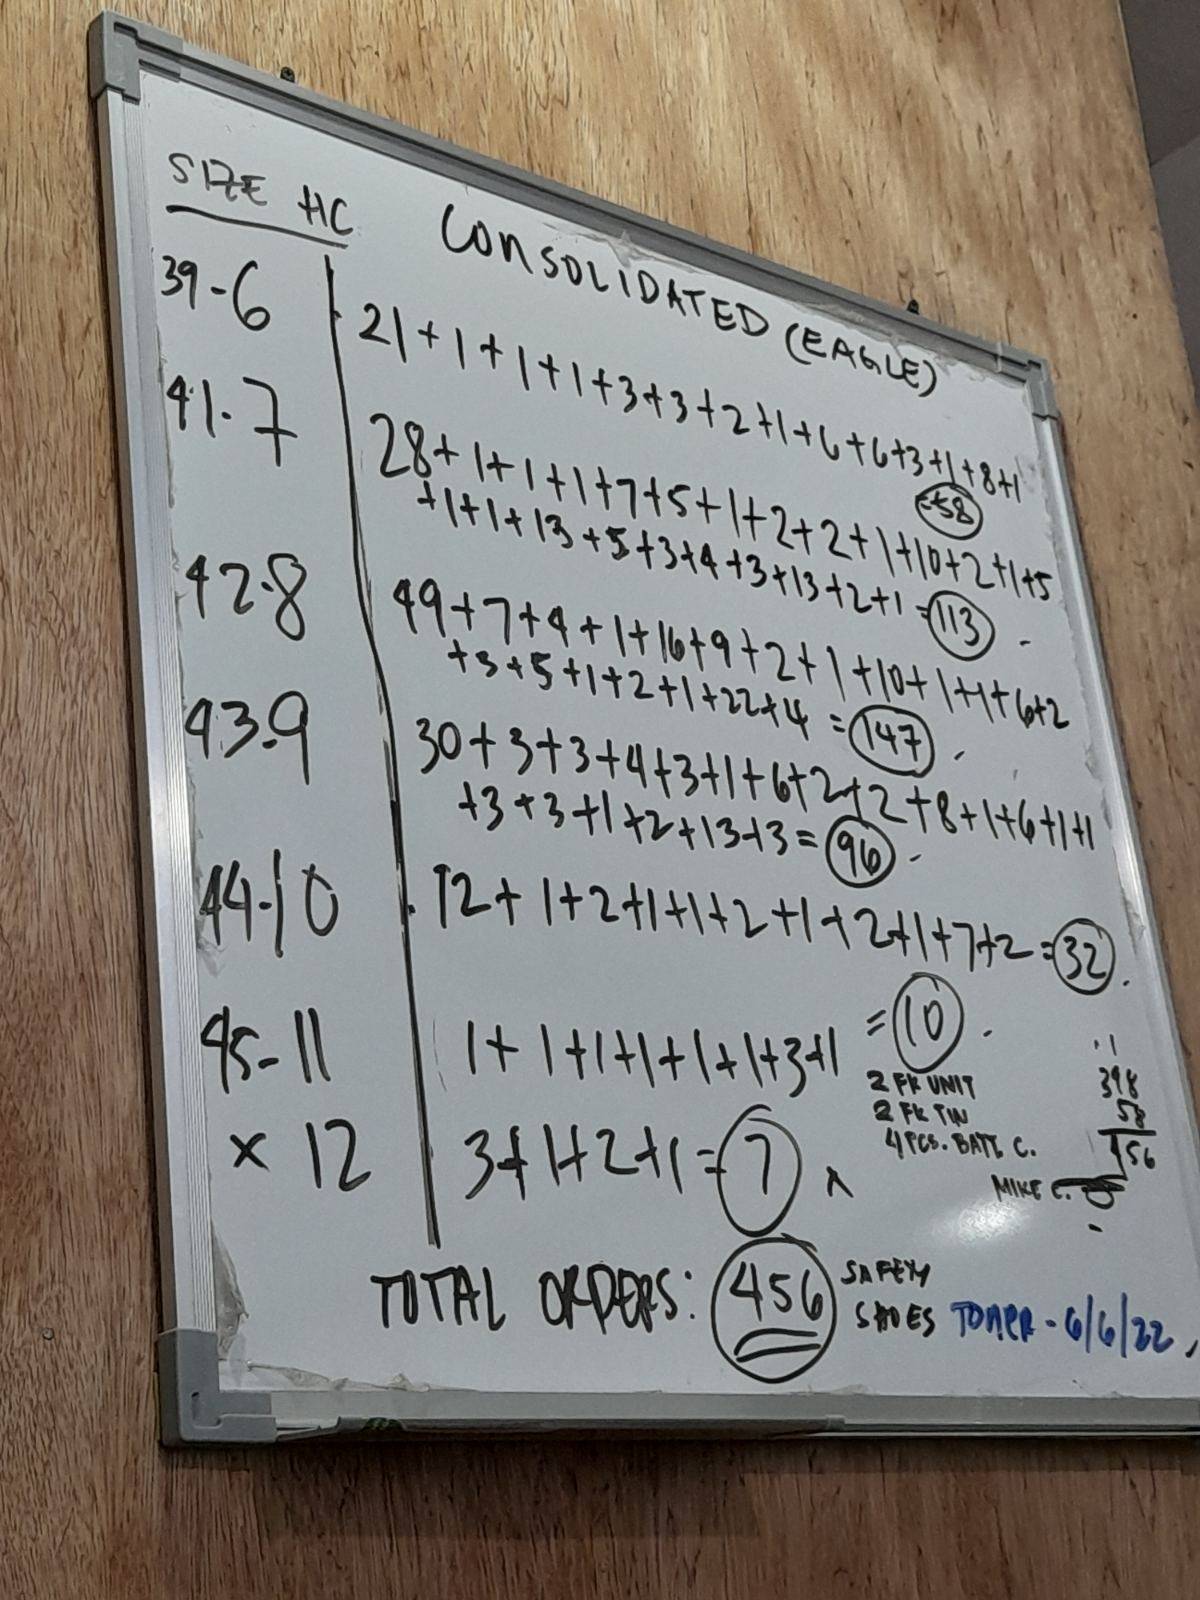 SIZE HC
CONSOLIDATED (EAGLE)
39-6
21+1+1+1+3+3+2+1+6+6+3+1+8+1
=58
41-7
28+1+1+1+7+5+1+2+2+1+10+2+1+5
+1+1+13+5+3+4+3+13+2+1=113
42-8
49+7+4+1+16+9+2+1+10+1+1+6+2
+3+5+1+2+1+22+4=147
43-9
30+3+3+4+3+1+6+2+2+8+1+6+1+1
+3+3+1+2+13+3=96
44-10
12+1+2+1+1+2+1+2+1+7+2=32
45-11
1+1+1+1+1+1+3+1
=10
2 FK UNIT
2 FK TIN
4 PCS. BATT. C.
MIKE C.
398
58
456
x 12
3+1+2+1=7
TOTAL ORDERS: 456
SAFETY
SHOES
- 6/6/22